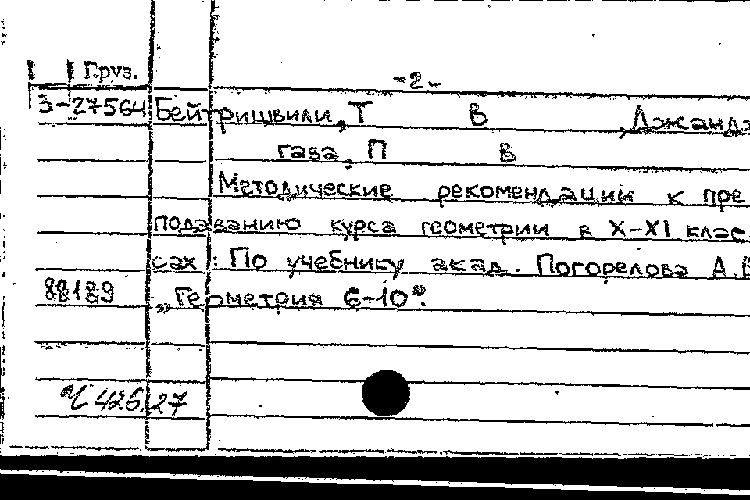 Груз.
-2-
3-27564 Бейтришвили, Т В , Джандж
гава, П В
Методические рекомендации к пре
подаванию курса геометрии в X-XI клас
сах: По учебнику акад. Погорелова А.В
„Геометрия 6-10".
Ч 426.27